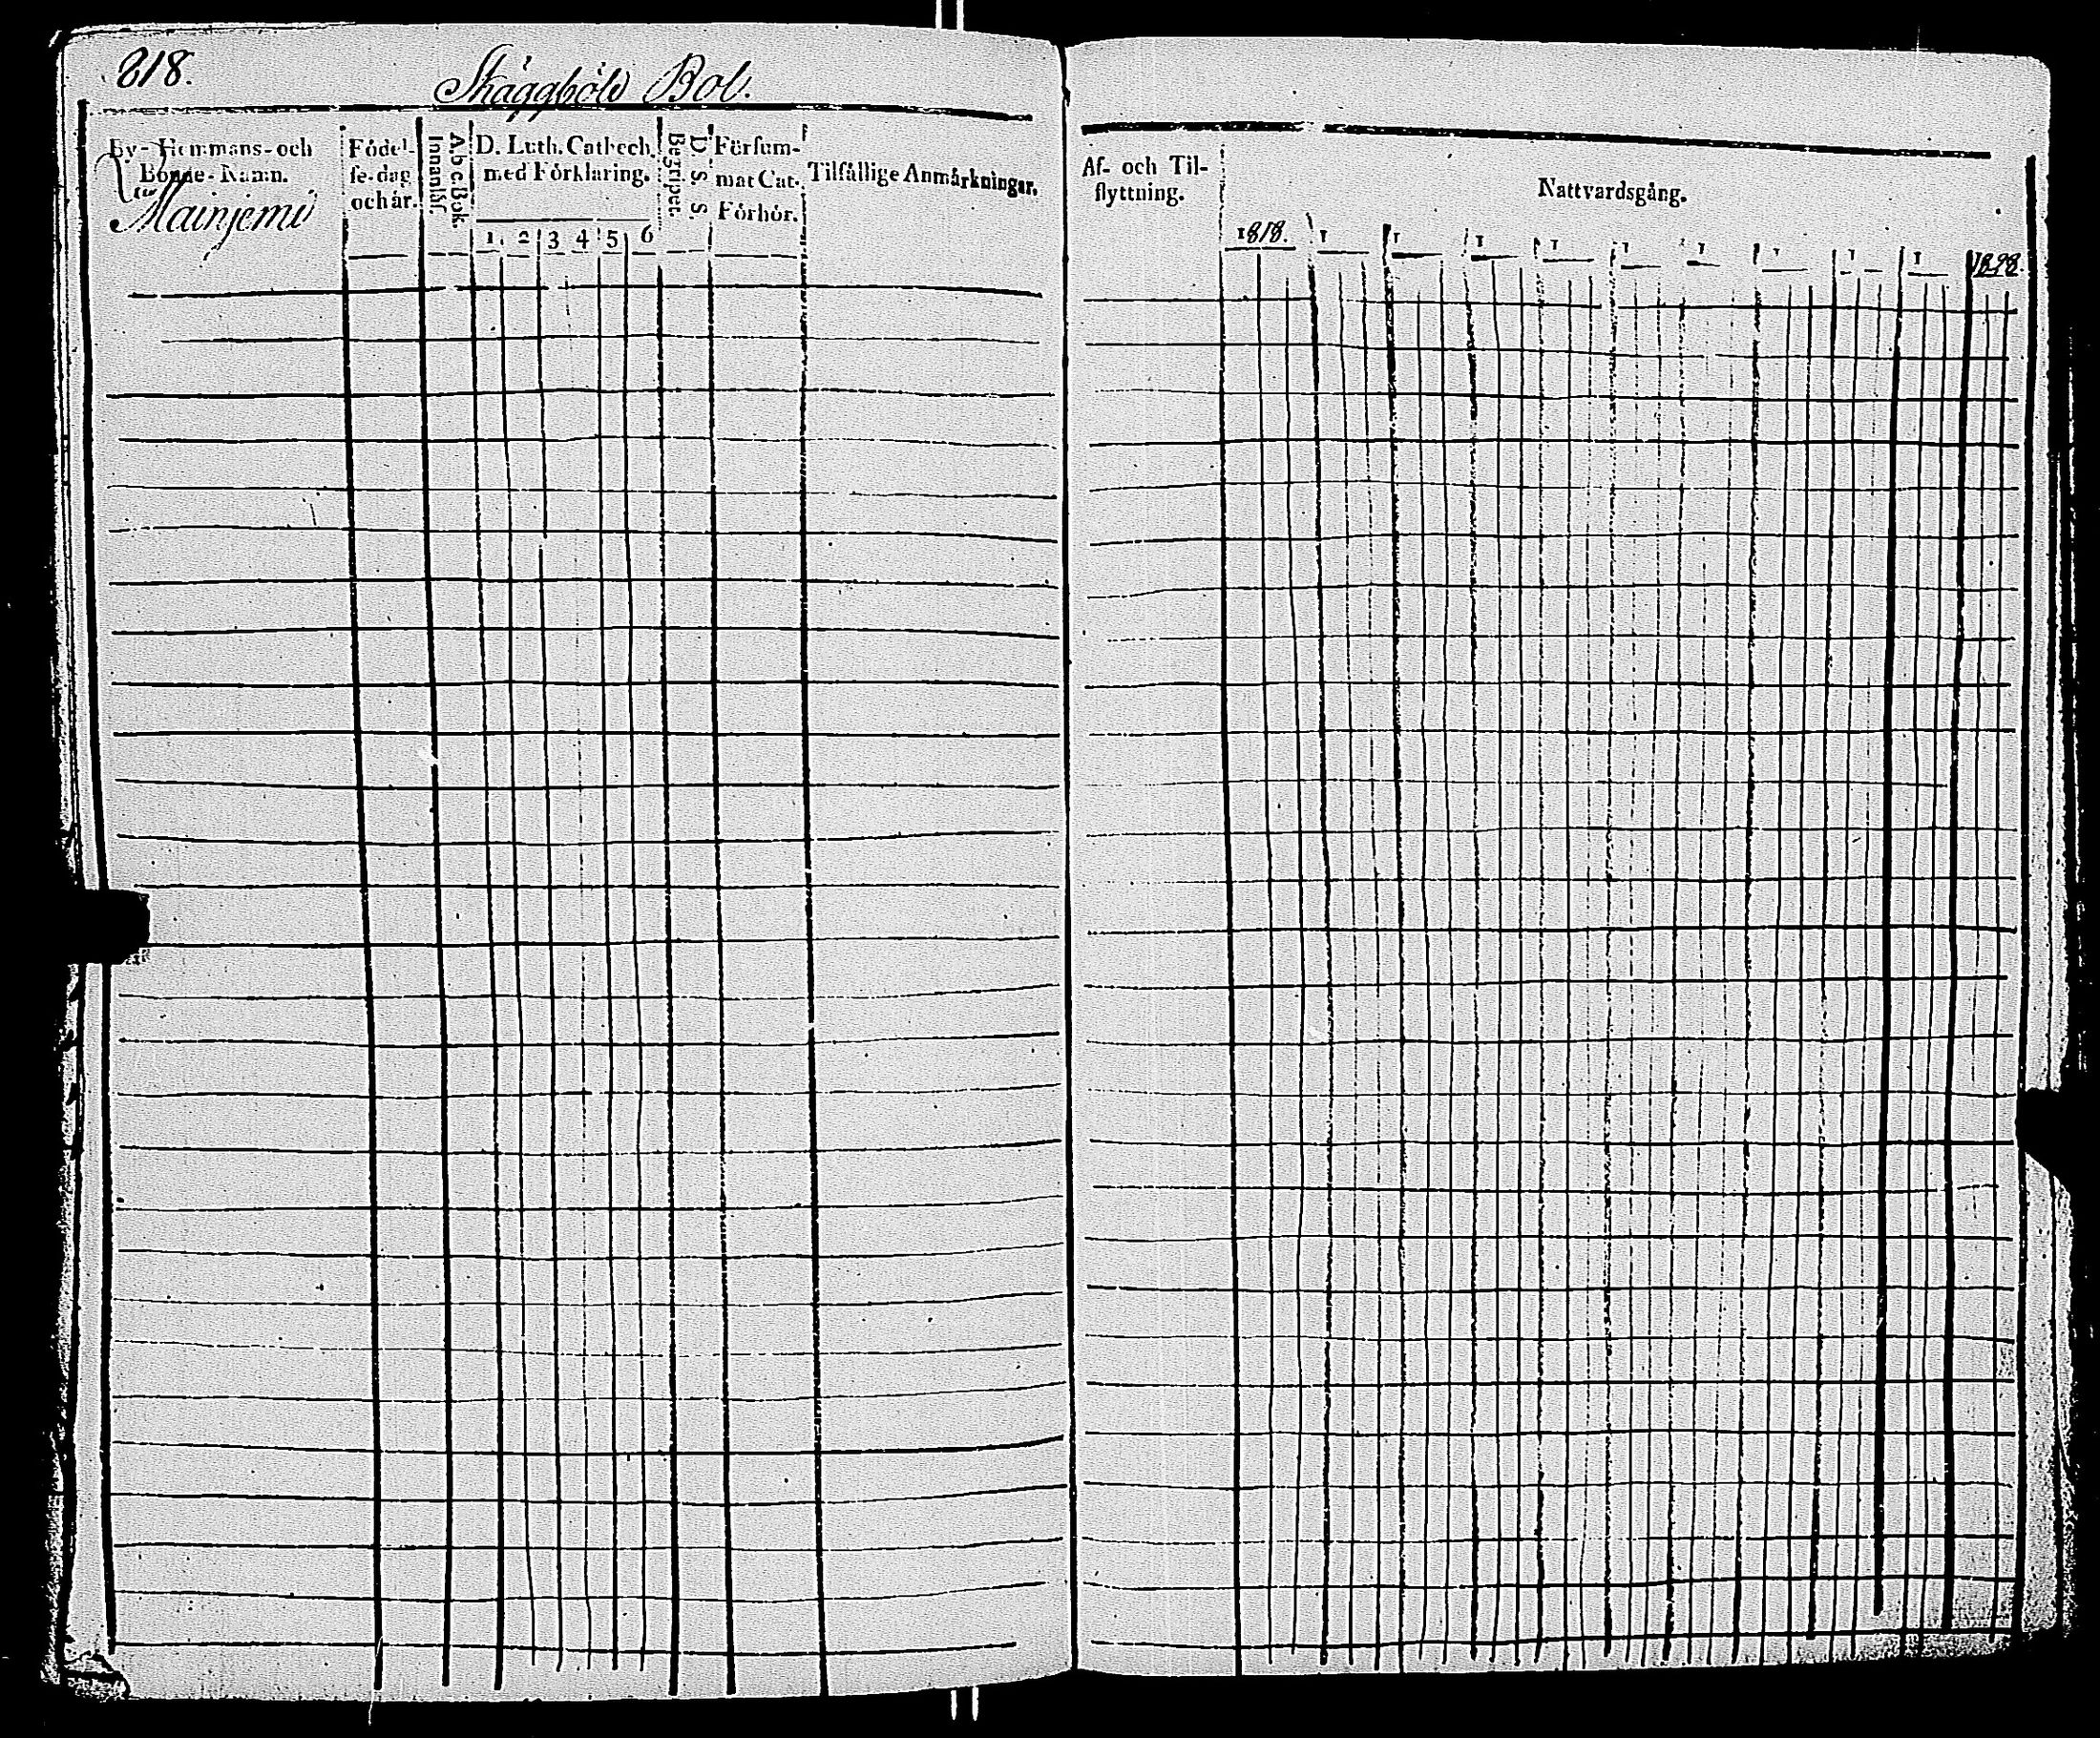 818.
Skäggböle Bol.
By- Hemmans- och
Bonde- Namn.
Födel-
se-dag
och år.
A b c Bok.
Innanläs.
D. Luth. Catbech.
med Förklaring.
1. 2 3 4 5 6
D. S. S.
Begripet.
Försum-
mat Cat-
Förhör.
Tilfällige Anmärkningar.
Af- och Til-
flyttning.
Nattvardsgång.
1818. 1 1 1 1 1 1 1 1 1 1828.